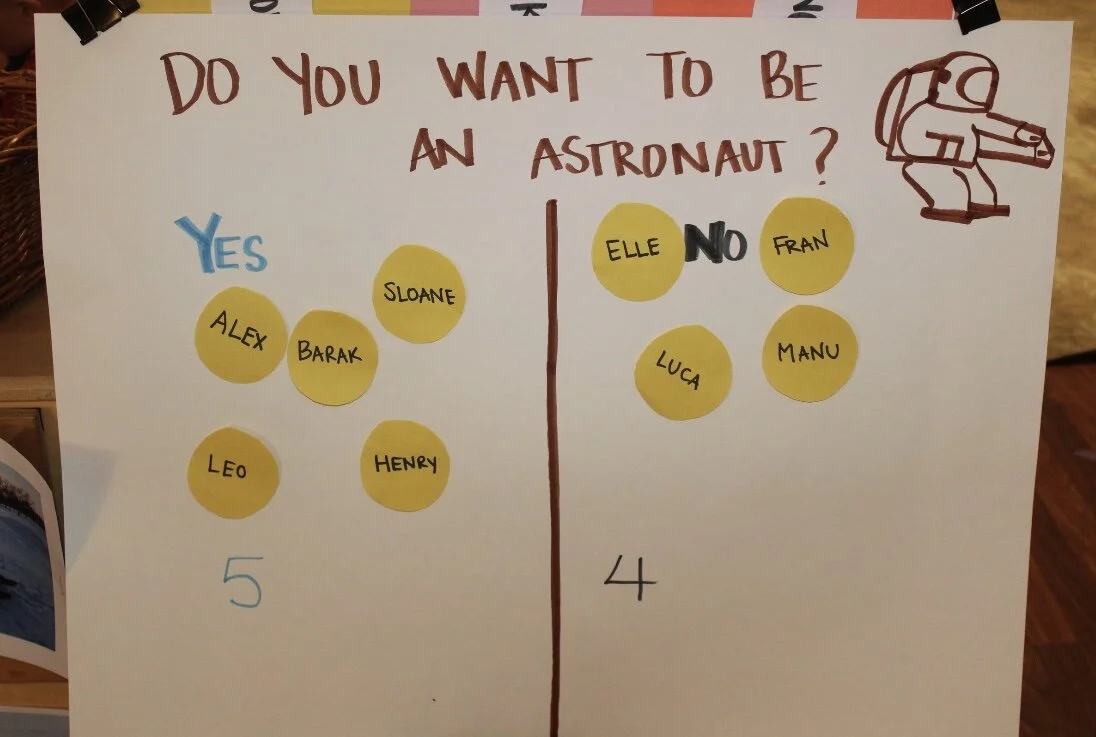 DO YOU WANT TO BE
AN ASTRONAUT?
YES
SLOANE
ALEX
BARAK
LEO
HENRY
5
ELLE
NO
FRAN
LUCA
MANU
4